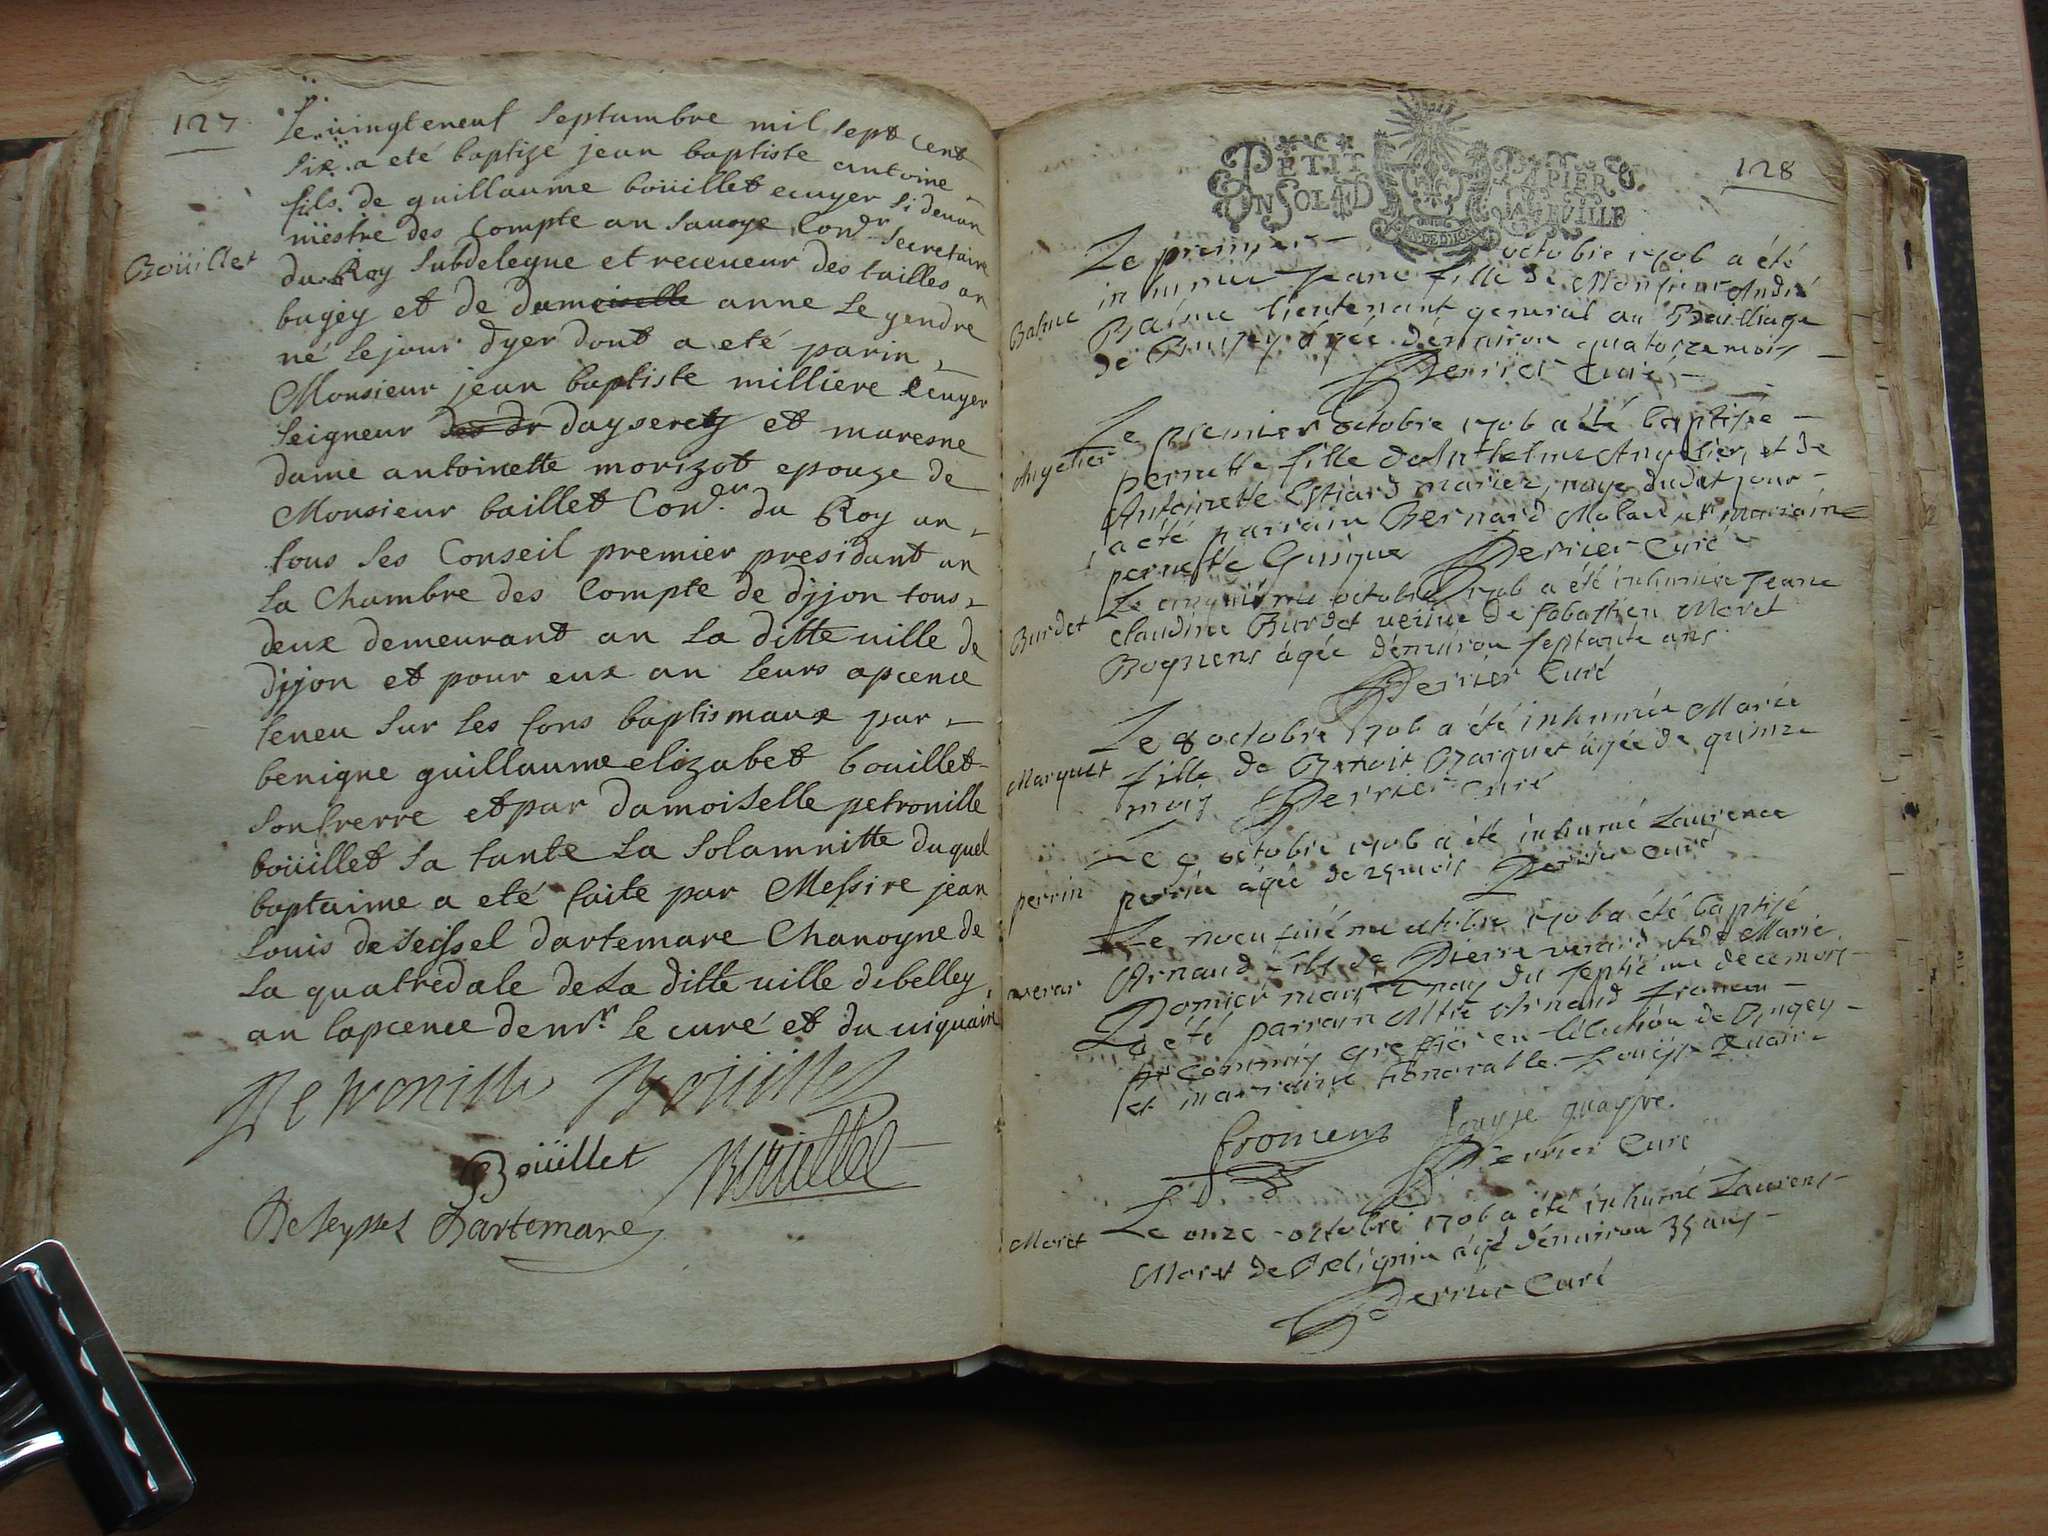 127
Le vingteneuf Septambre mil sept cent
six a eté baptize jean baptiste antoine
fils de guillaume boüillet ecuyer si devan
mëstre des Compte an Savoye Con.er Secretaire
Boüillet
du Roy Subdelegue et receueur des tailles an
bugëy et de damoiselle anne Le gendre
né le jour dyer dont a eté parin
Monsieur jean baptiste milliere Ecuyer
Seigneur des dr dayserety et maresne
dame antoinette morizot epouze de
Monsieur baillet Con.er du Roy an
tous ses Conseil premier presidant an
La Chambre des Compte de dijon tous
deux demeurant an La ditte uille de
dijon et pour eux an leurs apcence
teneu sur les fons baptismaux par
benigne guillaume elizabet bouillet
son frerre et par damoiselle petronille
boüillet sa tante La Solamnitte duquel
baptaime a eté faite par Messire jean
Louis de Seissel dartemare Chanoyne de
La quatredale de La ditte uille de belley
an lapcence de mr. le curé et du uiquaire
Petronille Boüillet
Boüillet Bouillet
De Seyssel Dartemare
128
PETIT PAPIER
UN SOL LA FEUILLE
Le premier octobre 1706 a été
inhumée Jeane fille de Monsieur André
Balme
Balme lieutenant general au Bailliage
de Bugey agée d'enuiron quatorze mois
Perrier Curé
Le premier octobre 1706 a été baptisée
Angelier
pernette fille d'Anthelme Angelier, et de
Antoinette mariez, naye dudit jour
a été parrain Bernard et marraine
pernette Perrier Curé
Le cinquieme octobre 1706 a été inhumée Jeane
Burdet
claudine Burdet veuue de Sabastien Moret
agée d'enuiron septante ans
Perrier Curé
Le 8 octobre 1706 a été inhumée Marie
Marquet
fille de Benoit Marquet agée de quinze
mois Perrier Curé
Le 9 octobre 1706 a été inhumé Laurence
perrin
perrin agée de 25 mois Perrier Curé
Le neuuiéme octobre 1706 a été baptisé
Arnaud fils de Pierre verar et de Marie
verar
mariez nay du septiéme de ce mois
a été parrain Mtre Arnaud fromen
commis greffier en l'élection de Bugey
et marraine honorable Louyse quayre
fromens Louyse quayre.
Perrier Curé
Le onze octobre 1706 a été inhumé Laurens
Moret
Moret de agé d'enuiron 35 ans
Perrier Curé